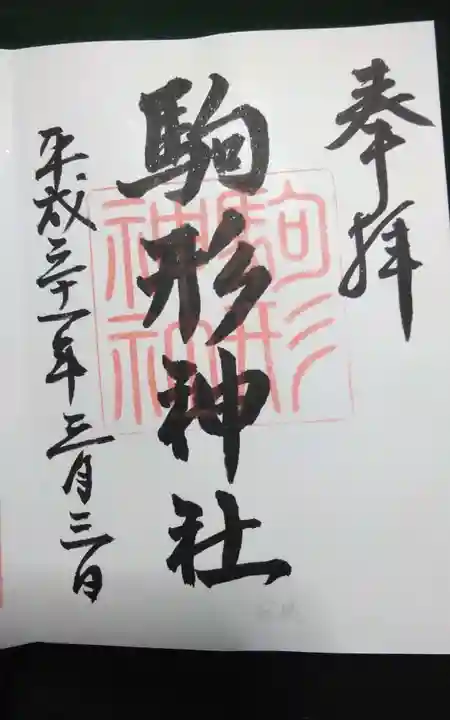 奉拝
駒形神社
駒形
神社
平成三十一年三月三日